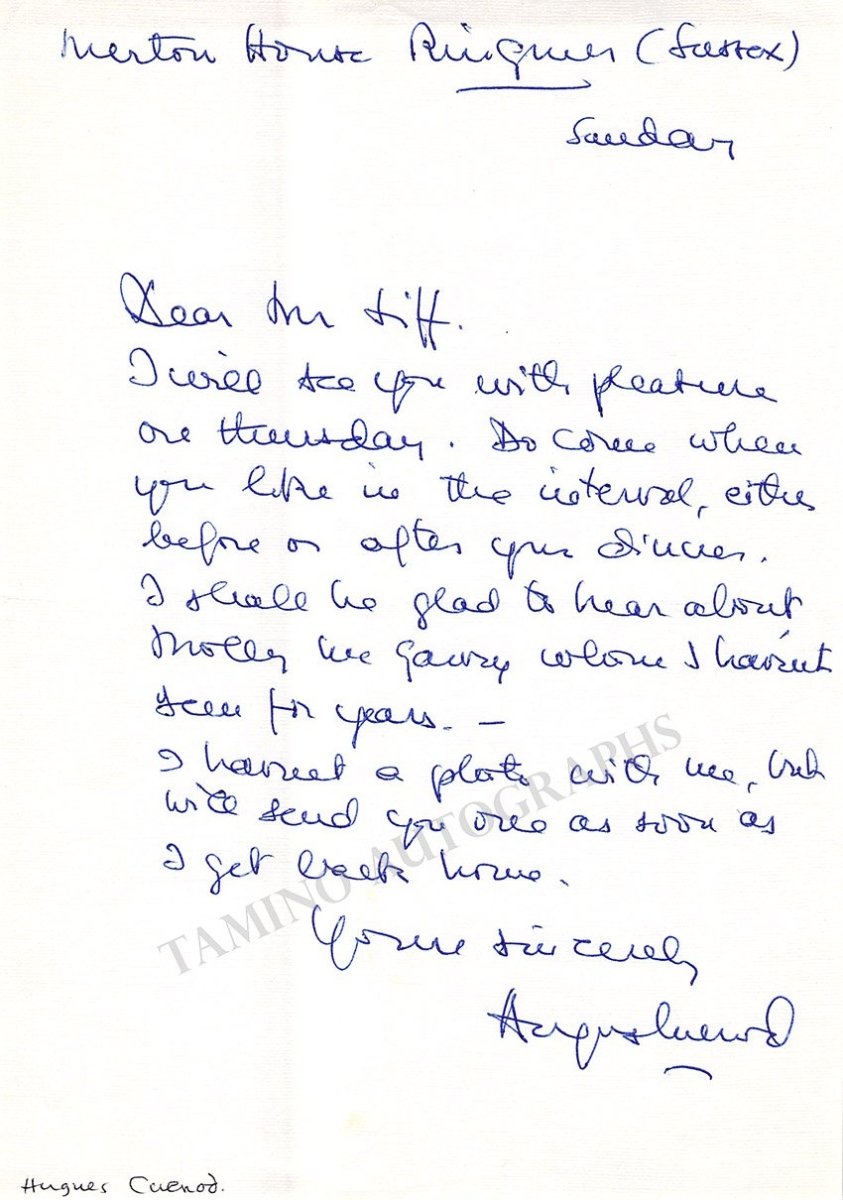 Merton House Ringmer (Sussex)
Sunday
Dear Mr Siff.
I will see you with pleasure
on thursday. Do come when
you like in the interval, either
before or after your dinner.
I shall be glad to hear about
Molly Mc Gawry whom I havent
seen for years. —
I havent a photo with me, but
will send you one as soon as
I get back home.
Yours sincerely
Hugues Cuenod
Hugues Cuenod.
TAMINO AUTOGRAPHS